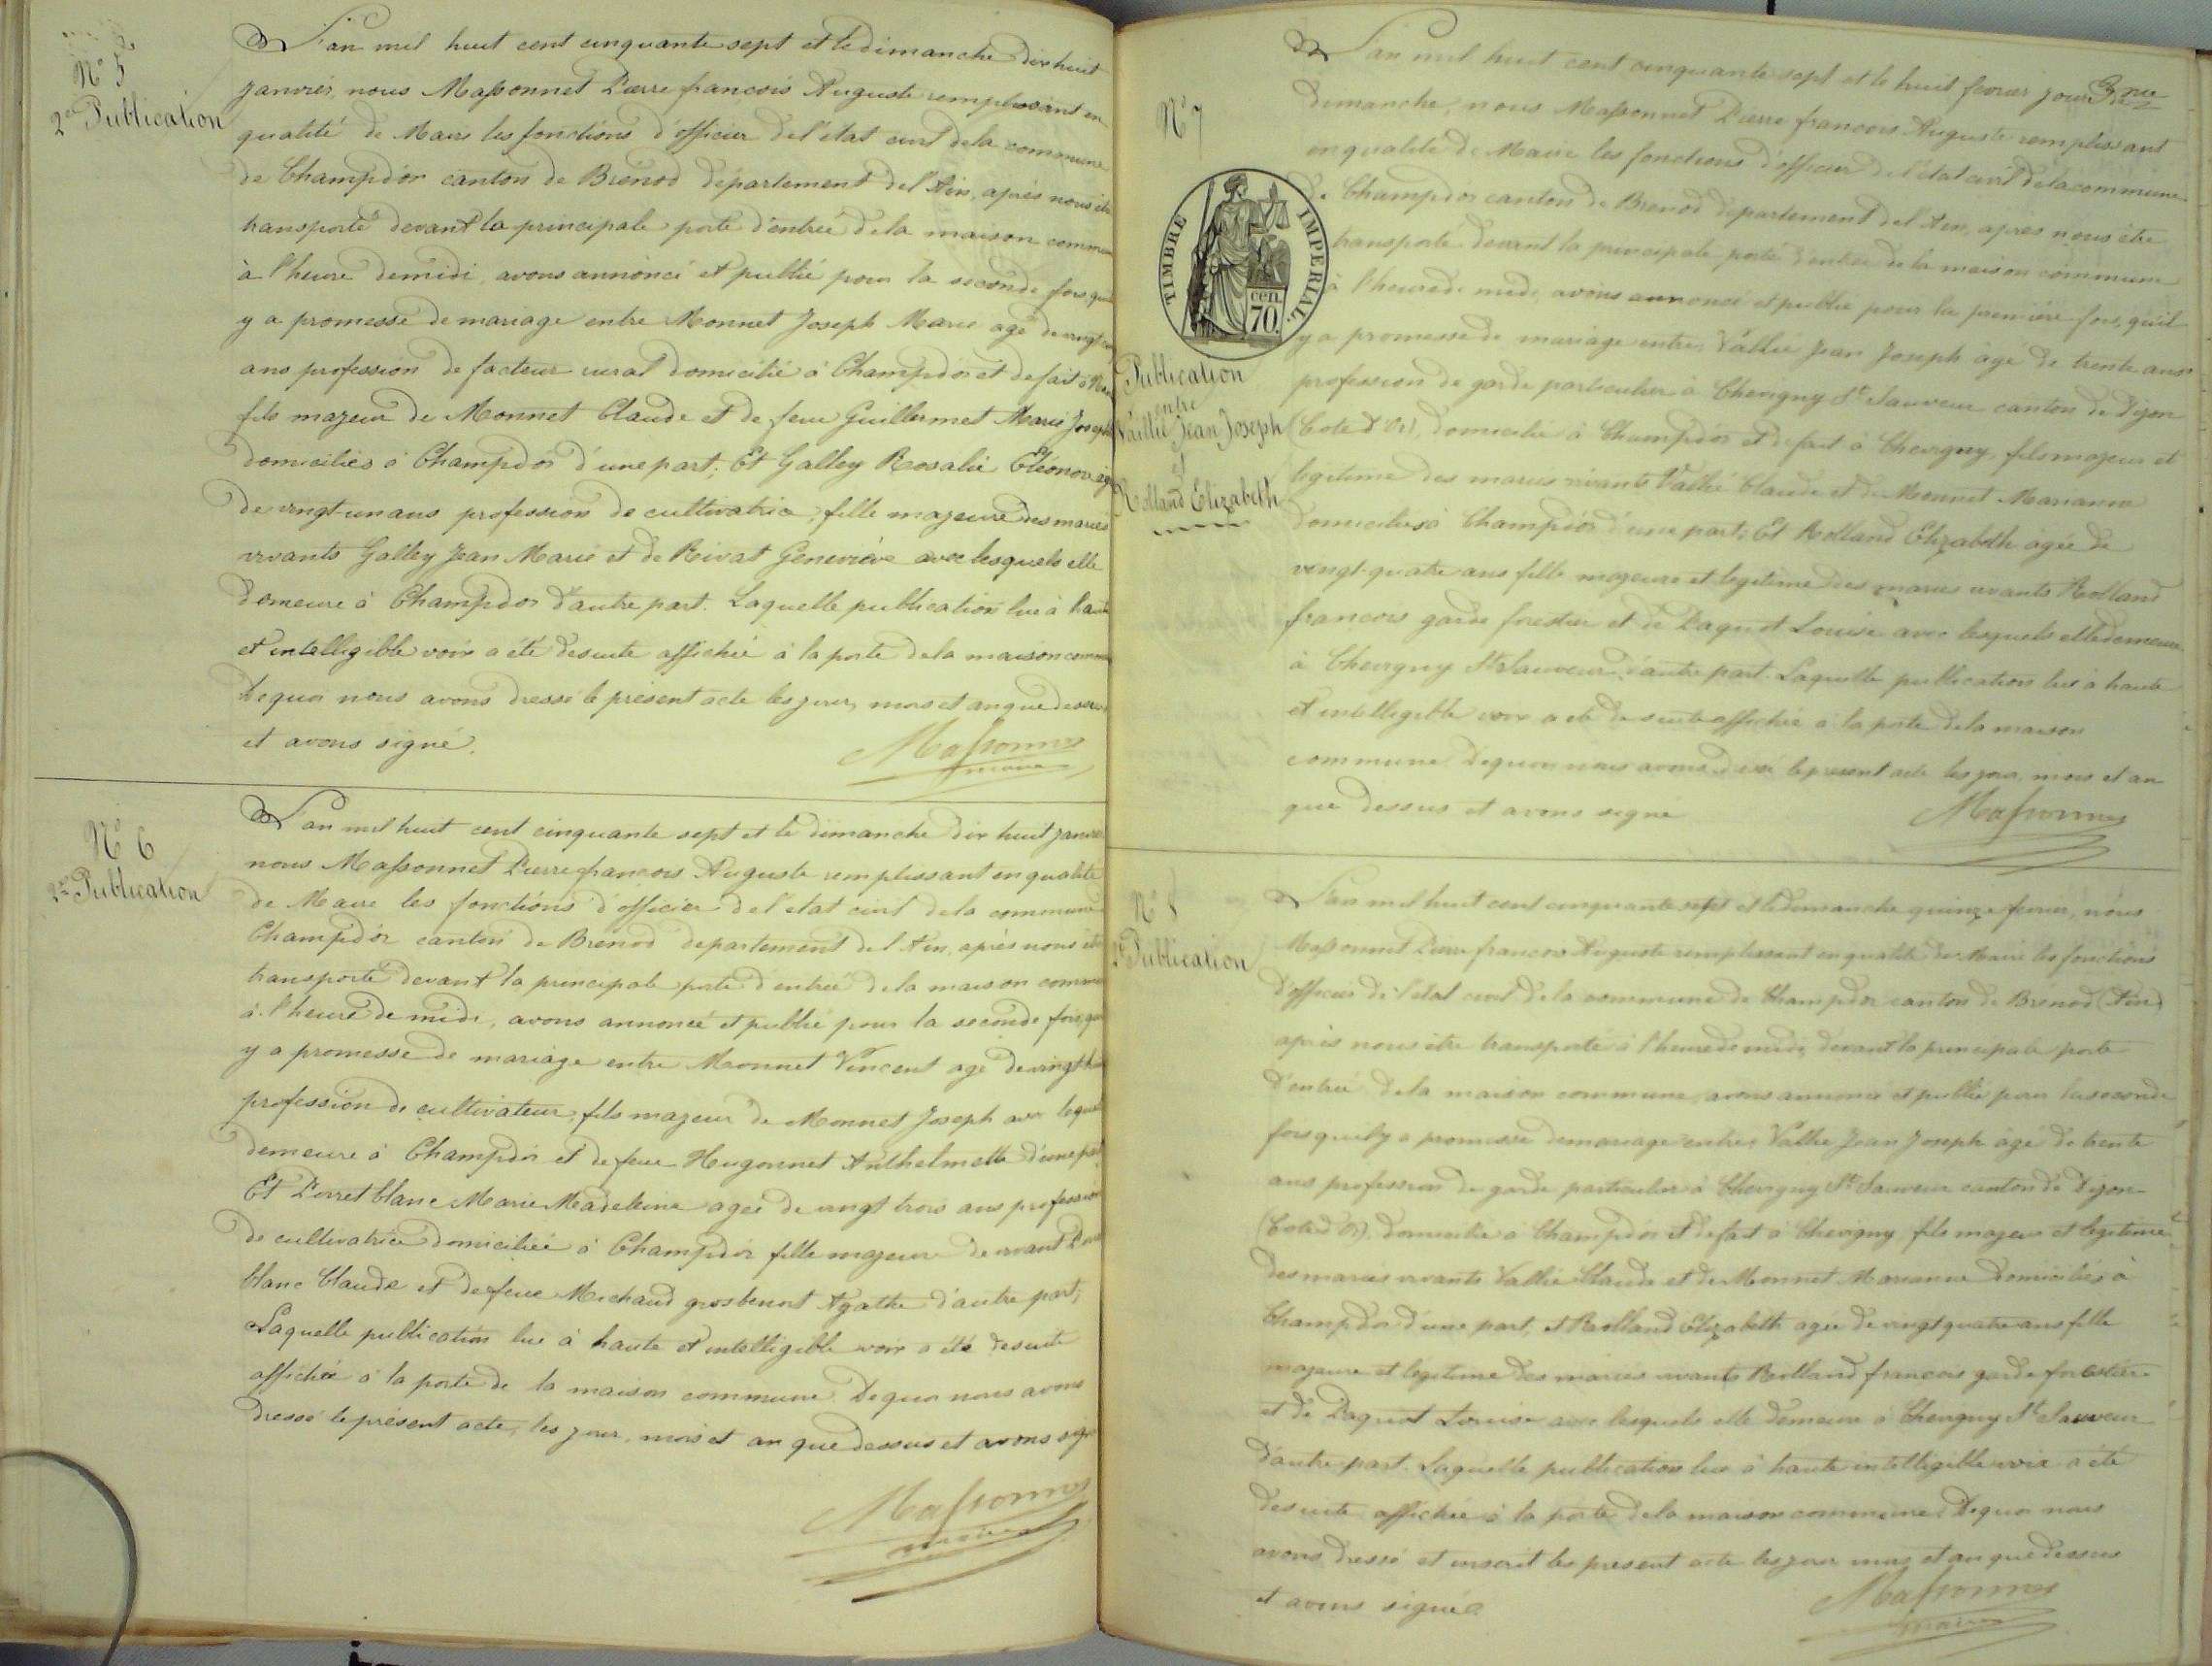 N° 5
2e Publication
L'an mil huit cent cinquante sept et le dimanche dix huit
janvier, nous Massonnet Pierre francois Auguste remplissant en
qualité de Maire les fonctions d'officier de l'état civil de la commune
de Champdor canton de Brenod département de l'Ain, après nous être
transporté devant la principale porte d'entrée de la maison commune
à l'heure de midi, avons annoncé et publié pour la seconde fois qu'il
y a promesse de mariage entre Monnet Joseph Marie agé de vingt
ans profession de facteur rural domicilié à Champdor et de fait à
fils majeur de Monnet Claude et de feue Guillermet Marie Josephe
domiciliés à Champdor d'une part; Et Galley Rosalie Eléonore agée
de vingt-un ans profession de cultivatrice, fille majeure des mariés
vivants Galley Jean Marie et de Rivat Geneviève avec lesquels elle
demeure à Champdor d'autre part. Laquelle publication lue à haute
et intelligible voix a été desuite affichée à la porte de la maison commune
De quoi nous avons dressé le présent acte les jour, mois et an que dessus
et avons signé.
Massonnet
maire
N° 6
2e Publication
L'an mil huit cent cinquante sept et le dimanche dix huit janvier
nous Massonnet Pierre francois Auguste remplissant en qualité
de Maire les fonctions d'officier de l'état civil de la commune
Champdor canton de Brenod departement de l'Ain, après nous être
transporté devant la principale porte d'entrée de la maison commune
à l'heure de midi, avons annoncé et publié pour la seconde fois, qu'il
y a promesse de mariage entre Monnet Vincent agé de vingt huit
profession de cultivateur, fils majeur de Monnet Joseph avec lequel
demeure à Champdor et de feue Hugonnet Anthelmette d'une part
Et Perret blanc Marie Madeleine agée de vingt trois ans profession
de cultivatrice domiciliée à Champdor fille majeure de vivant Perret
blanc Claude et de feue Michaud grosbenoit Agathe d'autre part;
Laquelle publication lue à haute et intelligible voix a été desuite
affichée à la porte de la maison commune. De quoi nous avons
dressé le présent acte, les jour, mois et an que dessus et avons signé
Massonnet
maire
3me
N° 7
TIMBRE IMPERIAL.
cen.
70.
Publication
entre
Vallié Jean Joseph
et
Rolland Elizabeth
L'an mil huit cent cinquante sept et le huit fevrier jour de
dimanche, nous Massonnet Pierre francois Auguste remplissant
en qualité de Maire les fonctions d'officier de l'état civil de la commune
de Champdor canton de Brenod departement de l'Ain, après nous être
transporté devant la principale porte d'entrée de la maison commune
à l'heure de midi, avons annoncé et publié pour la première fois, qu'il
y a promesse de mariage entre, Vallié Jean Joseph âgé de trente ans
profession de garde particulier à Chevigny St Sauveur canton de Dijon
(Cote d'Or), domicilié à Champdor et de fait à Chevigny, fils majeur et
légitime des mariés vivants Vallié Claude et de Monnet Marianne
domiciliés à Champdor d'une part; Et Rolland Elizabeth agée de
vingt-quatre ans fille majeure et légitime des mariés vivants Rolland
francois garde forestier et de Paquot Louise avec lesquels elle demeure
à Chevigny St Sauveur d'autre part. Laquelle publication lue à haute
et intelligible voix a été de suite affichée à la porte de la maison
commune. De quoi nous avons dressé le présent acte les jour, mois et an
que dessus et avons signé
Massonnet
N° 8
2e Publication
L'an mil huit cent cinquante sept et le dimanche quinze fevrier, nous
Massonnet Pierre francois Auguste remplissant en qualité de Maire les fonctions
d'officier de l'état civil de la commune de Champdor canton de Brenod (Ain)
après nous être transporté à l'heure de midi devant la principale porte
d'entrée de la maison commune, avons annoncé et publié pour la seconde
fois qu'il y a promesse de mariage entre Vallié Jean Joseph âgé de trente
ans profession de garde particulier à Chevigny St Sauveur canton de Dijon
(Cote d'Or), domicilié à Champdor et de fait à Chevigny fils majeur et légitime
des mariés vivants Vallié Claude et de Monnet Marianne domiciliés à
Champdor d'une part, et Rolland Elizabeth agée de vingt quatre ans fille
majeure et légitime des mariés vivants Rolland francois garde forestier
et de Paquot Louise avec lesquels elle demeure à Chevigny St Sauveur
d'autre part. Laquelle publication lue à haute intelligible voix a été
desuite affichée à la porte de la maison commune. De quoi nous
avons dressé et inscrit le présent acte les jour mois et an que dessus
et avons signé
Massonnet
maire